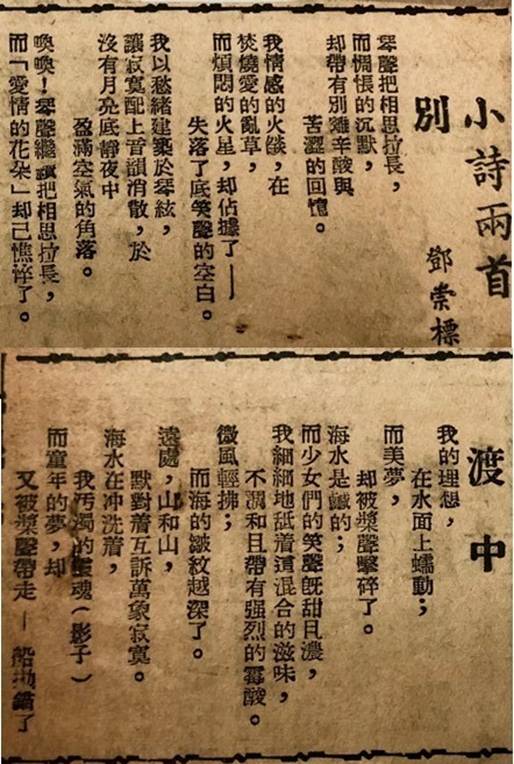 小詩兩首
鄧崇標
別
琴聲把相思拉長，
而惆悵的沉默，
却帶有別離辛酸與
苦澀的回憶。
我情感的火燄，在
焚燒愛的亂草，
而煩悶的火星，却佔據了——
失落了底笑聲的空白。
我以愁緒建築於琴絃，
讓寂寞配上音韻消散，於
沒有月亮底靜夜中
盈滿空氣的角落。
喚喚！琴聲繼續把相思拉長，
而「愛情的花朵」却已憔悴了。
渡中
我的理想，
在水面上蠕動；
而美夢，
却被槳聲擊碎了。
海水是鹹的；
而少女們的笑聲旣甜且濃，
我細細地舐着這混合的滋味，
不調和且帶有强烈的霉酸。
微風輕拂；
而海的皺紋越深了。
遠處，山和山，
默對着互訴萬象寂寞。
海水在冲洗着，
我汚濁的靈魂（影子）
而童年的夢，却
又被槳聲帶走—船拋錨了